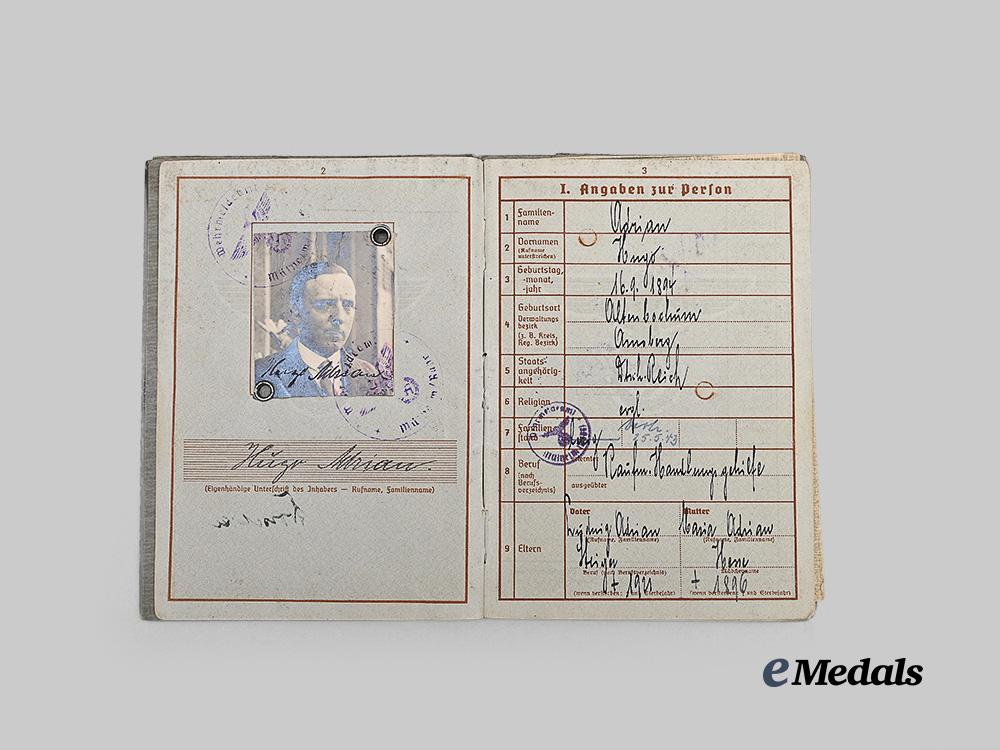 2
Wehrmeldeamt
Hugo Adrian
Hugo Adrian.
(Eigenhändige Unterschrift des Inhabers — Rufname, Familienname)
3
I. Angaben zur Person
1 Familien-
name
Adrian
2 Vornamen
(Rufname
unterstreichen)
Hugo
3 Geburtstag,
-monat,
-jahr
16.9.1894
4 Geburtsort
Verwaltungs
bezirk
(z. B. Kreis,
Reg. Bezirk)
Altenbochum
Arnsberg
5 Staats-
angehörig-
keit
Dtsch. Reich
6 Religion
evgl.
7 Familien-
stand
verh.
25.5.43
8 Beruf
(nach
Berufs-
verzeichnis)
erlernter
ausgeübter
Kaufm. Handlungsgehilfe
9 Eltern
Vater
Mutter
Ludwig Adrian
Maria Adrian
(Rufname, Familienname)
(Rufname, Familienname)
Steiger
Beruf (nach Berufsverzeichnis)
Mädchenname
† 1896
(wenn verstorben: und Sterbejahr)
eMedals